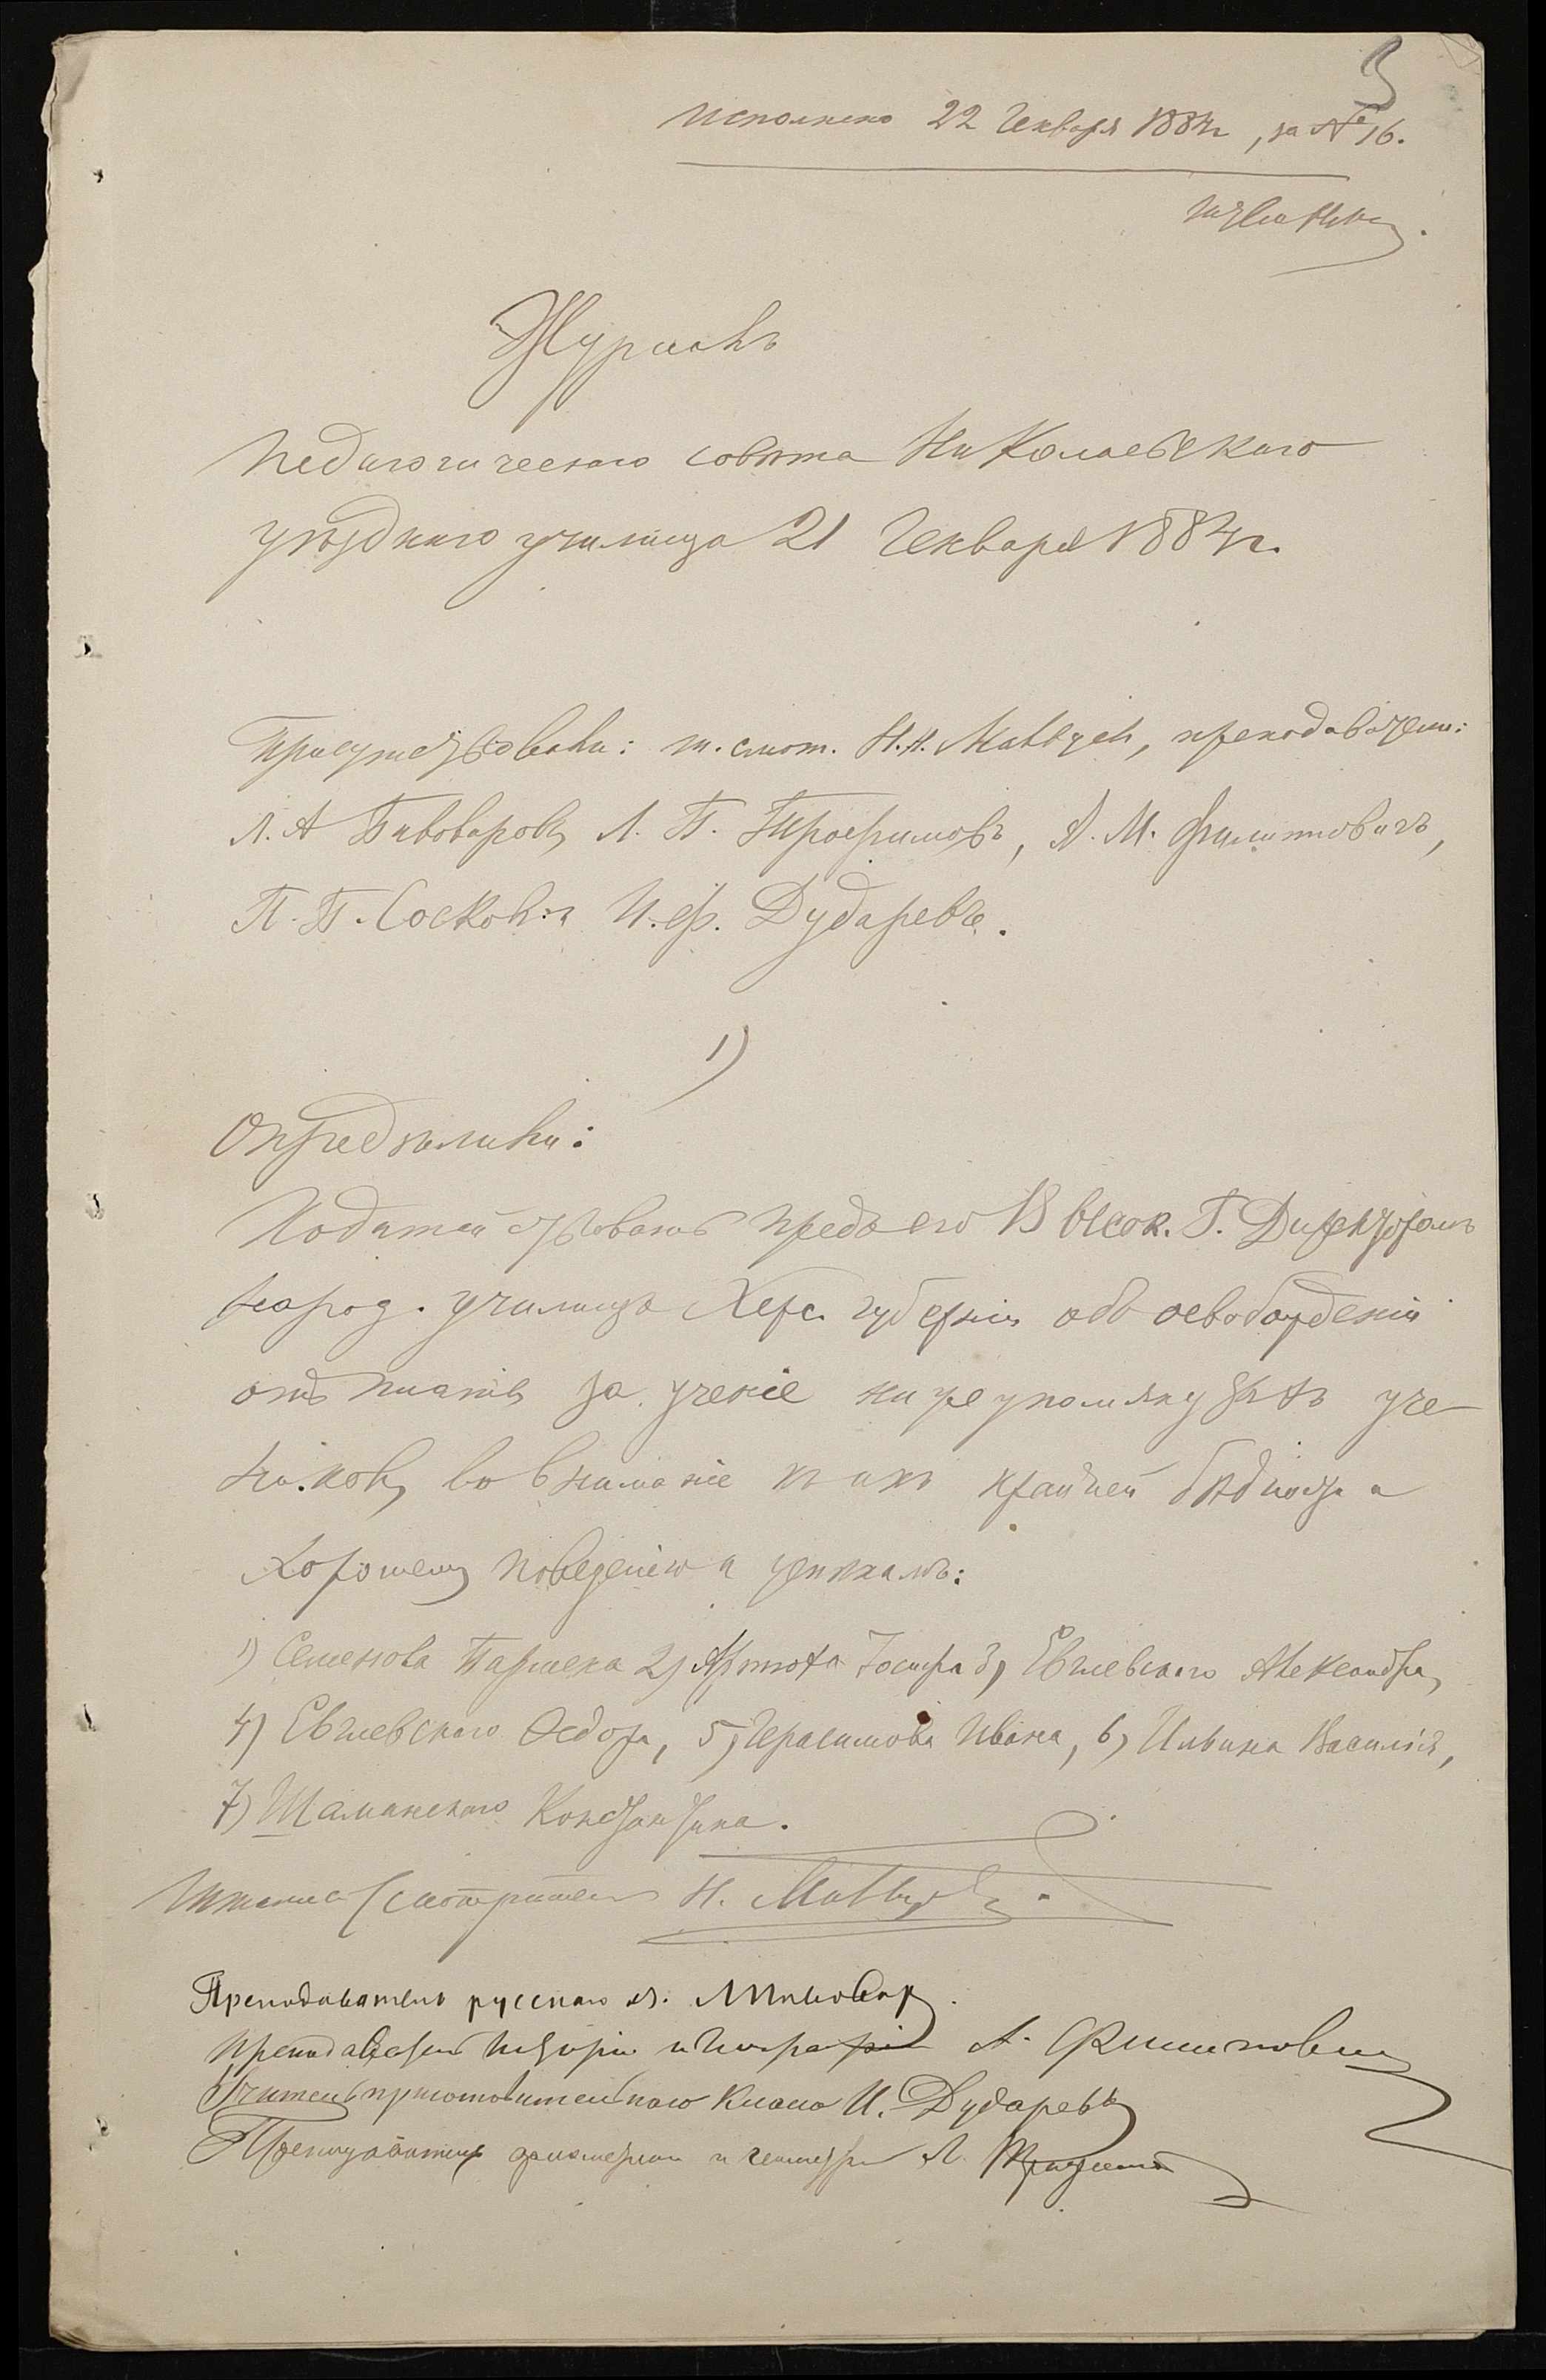 3
Исполнено 22 Генваря 1884 г, за № 16.
Журналъ
Педагогическаго совѣта Николаевскаго
уѣзднаго училища 21 Генваря 1884 г.
Присутствовали: ш. смот. Н. Н. , преподаватели:
Л. А Пивоваровъ, Л. П. Трофимовъ, А. М. Филипповичъ,
П. П. Сосковъ и И. Ф. Дударевъ.
1)
Опредѣлили:
Ходатайствовать предъ его Высок. Г. Директоромъ
народ. училищъ Херс. губерніи объ освобожденіи
отъ платы за ученіе нижеупомянутыхъ уче-
никовъ, во вниманіе къ ихъ крайней бѣдности и
хорошему поведенію и успѣхамъ:
1) Семенова 2) 3) Евлевскаго Александра,
4) Евлевскаго Ѳедора, 5) Герасимова Ивана, 6) Ильина Василія,
7) Шаманскаго Константина.
Штатный Смотритель Н.
Преподаватель русскаго яз. Л Пивовар
Преподаватель Исторіи и Географіи А. Филиппович
Учитель приготовительнаго класса И. Дударевъ
Преподаватель ариѳметики и геометріи Л.